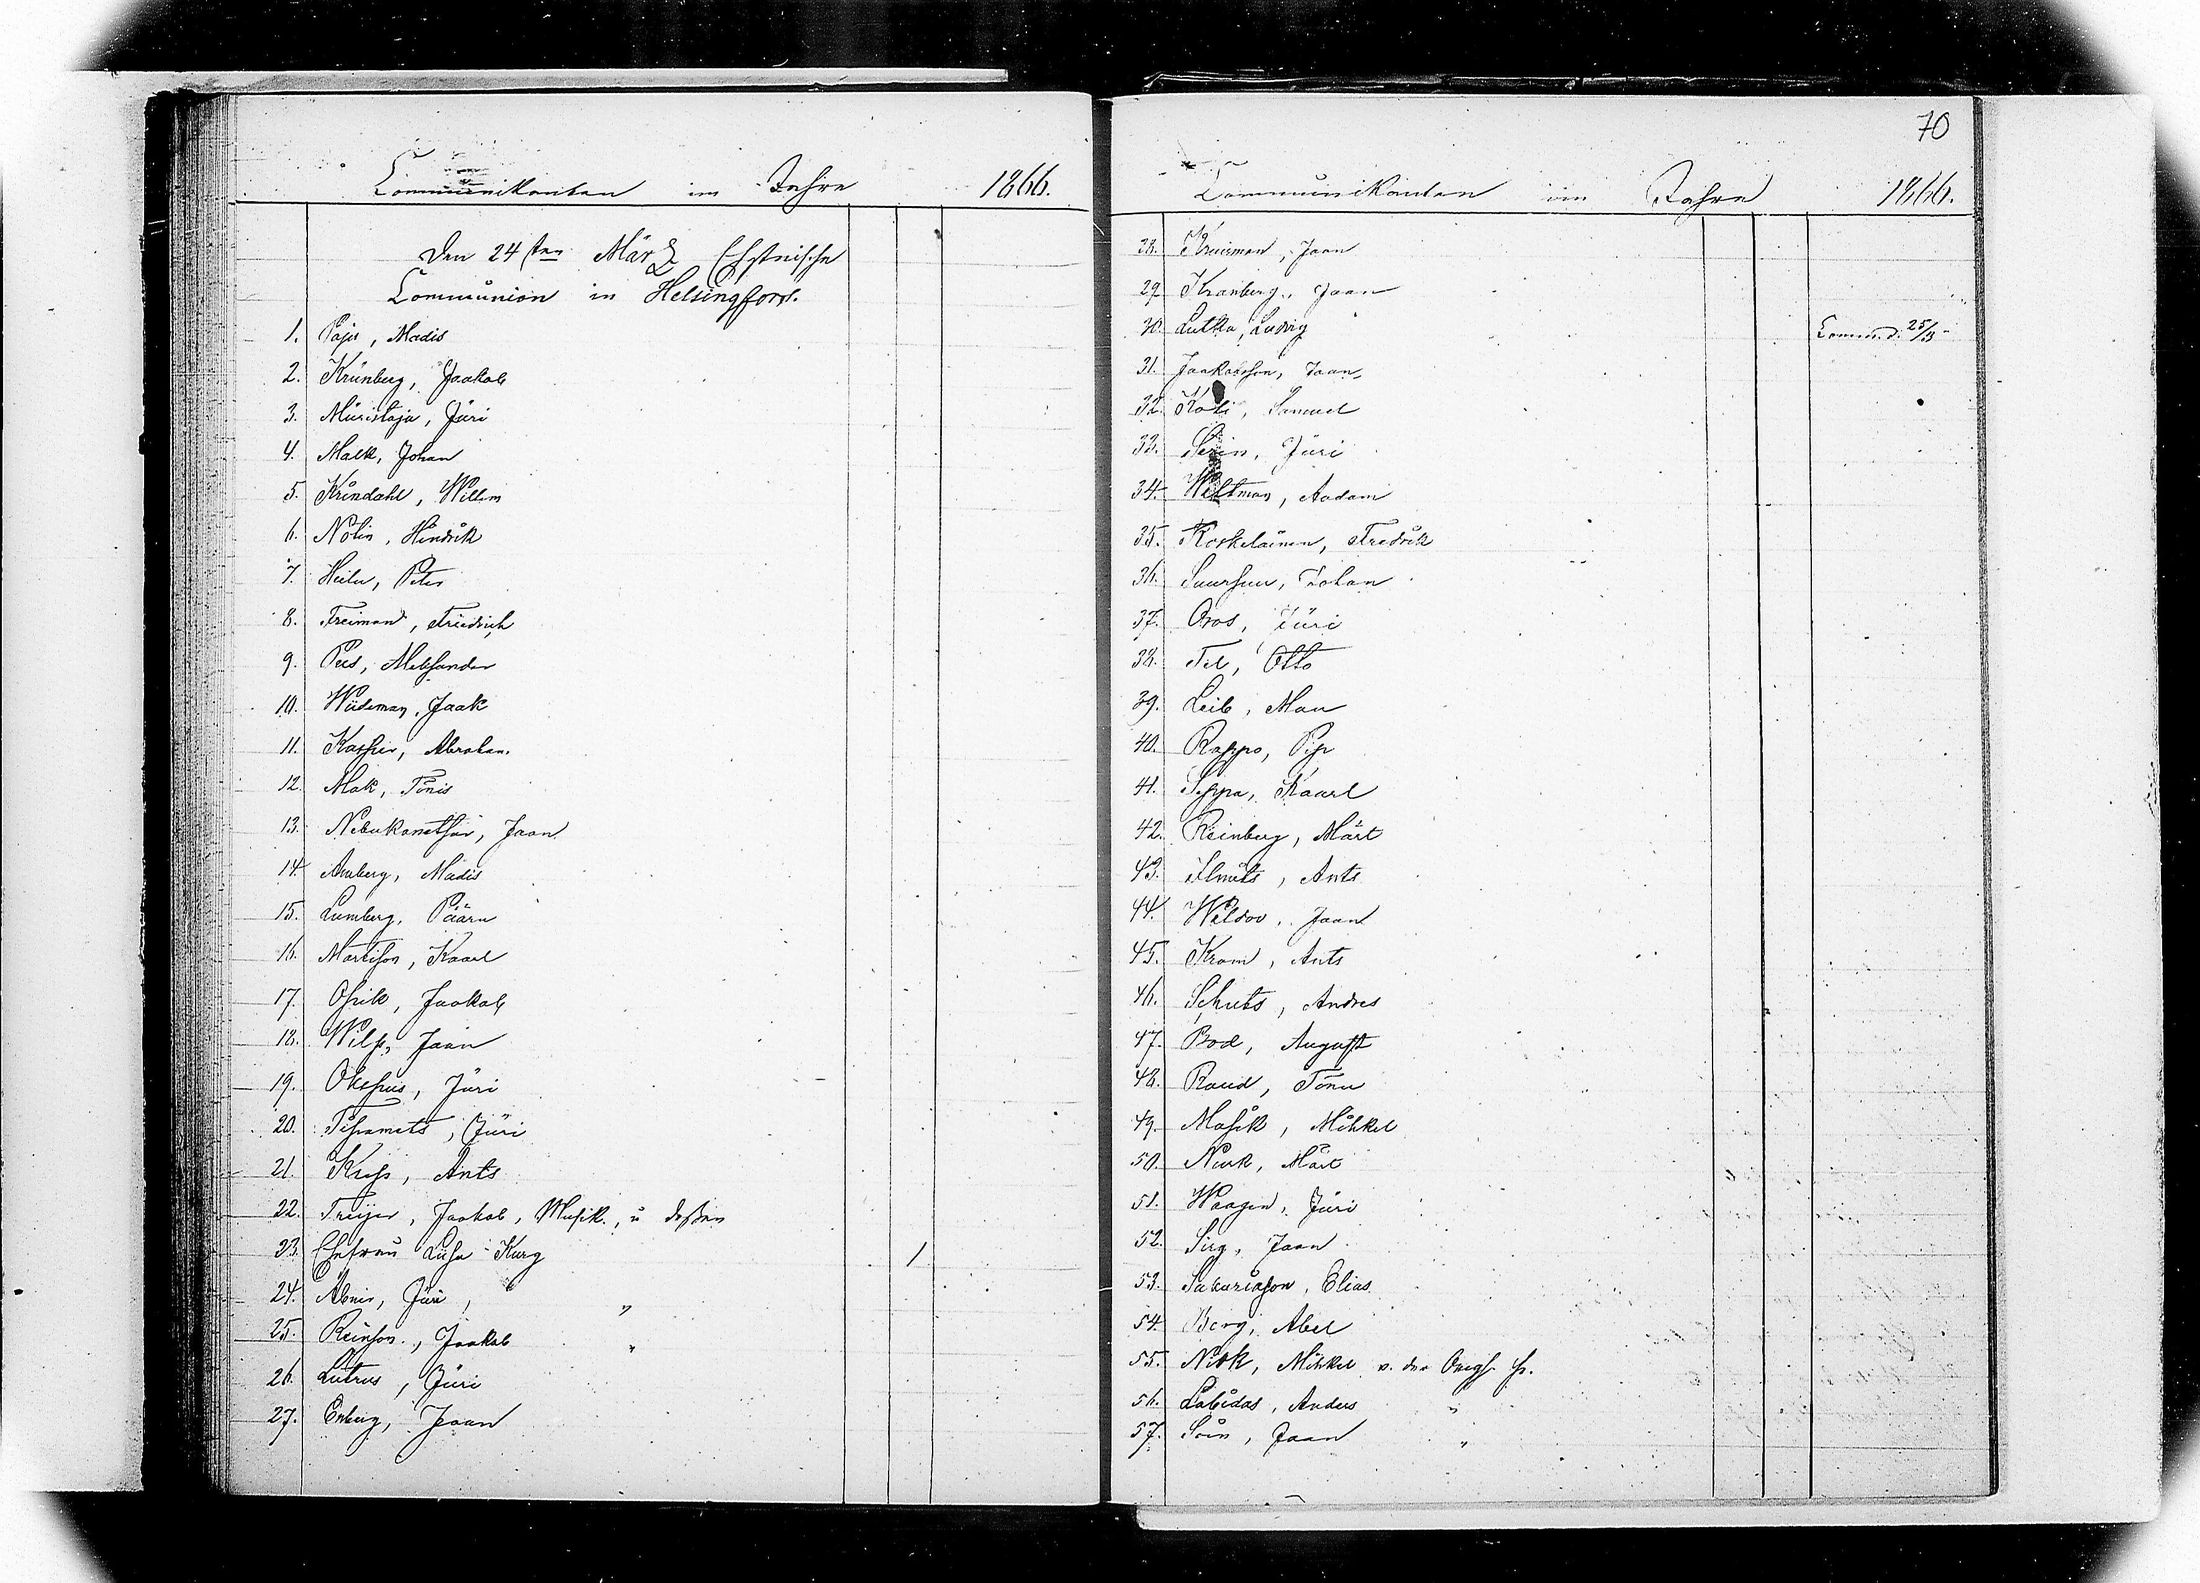 Communikanten im Jahre 1866.
Den 24sten März Ehstnische
Communion in Helsingfors.
1. Paju, Madis
2. Krünberg, Jaakob
3. Müristaja, Jüri
4. Malk, Johan
5. Kröndahl, Willem
6. Nölin, Hindrik
7. Heiler, Peter
8. Freiman, Friedrich
9. Pus, Aleksander
10. Wiideman, Jaak
11. Kasper, Abraham
12. Mak, Tönis
13. Nebukanetsar, Jaan
14. Amberg, Madis
15. Lumberg, Päärn
16. Martison, Kaarl
17. Jaakob
18. Wilp, Jaan
19. Jüri
20. Jüri
21. Ants
22. Treijer, Jaakob, Musik., u deßen
23. Ehefrau Kurg 1
24. Jüri, "
25. Reinson, Jaakob "
26. Lutrus, Jüri
27. Enberg, Jaan
70
Communikanten im Jahre 1866.
28. Jaan
29. Kranberg, Jaan
30. Ludwig 25/3
31. Jaakobson, Jaan
32. Samuel
33. Jüri
34. Weltman, Aadam
35. Koskelainen, Fredrik
36. Johan
37. Oras, Jüri
38. Tel, Otto
39. Leib, Man
40. Rappo, Pip
41. Seppa, Kaarl
42. Reinberg, Märt
43. Ants
44. Jaan
45. Krom, Ants
46. Schuts, Andres
47. August
48. Raud, Tönu
49. Masik, Mihkel
50. Nurk, Märt
51. Waagen, Jüri
52. Sirg, Jaan
53. Sakariason, Elias
54. Berg, Abel
55. Mihkel v. der
56. Labidas, Anders "
57. Soin, Jaan "